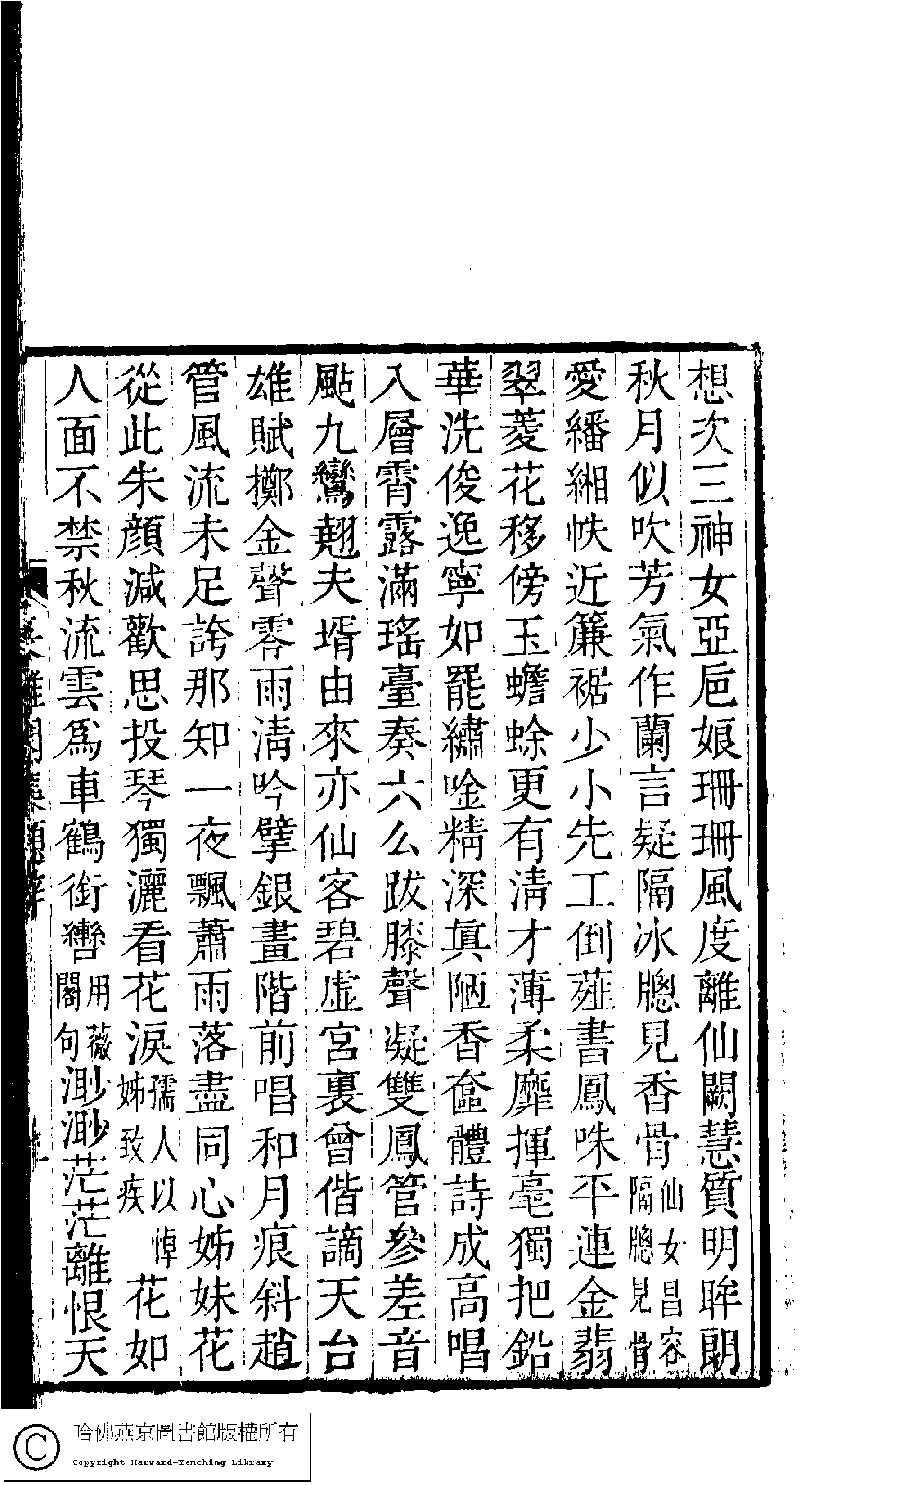 想次三神女亞巵娘珊珊風度離仙闕慧質明眸朗
秋月似吹芳氣作蘭言疑隔冰牕見香骨仙女昌容隔牕見骨
愛繙緗帙近簾裾少小先工倒薤書鳳咮平連金翡
翠菱花移傍玉蟾蜍更有清才薄柔靡揮毫獨把鉛
華洗俊逸寧如罷繡唫精深眞陋香奩體詩成高唱
入層霄露滿瑤臺奏六么跋膝聲凝雙鳳管參差音
颭九鸞翹夫壻由來亦仙客碧虛宮裏曾偕謫天台
雄賦擲金聲零雨清吟擘銀畫階前唱和月痕斜趙
管風流未足誇那知一夜飄蕭雨落盡同心姊妹花
從此朱顏減歡思投琴獨灑看花淚孺人以悼姊致疾花如
人面不禁秋流雲爲車鶴銜轡用薇閣句渺渺茫茫離恨天
哈佛燕京圖書館版權所有
Copyright Harvard-Yenching Library